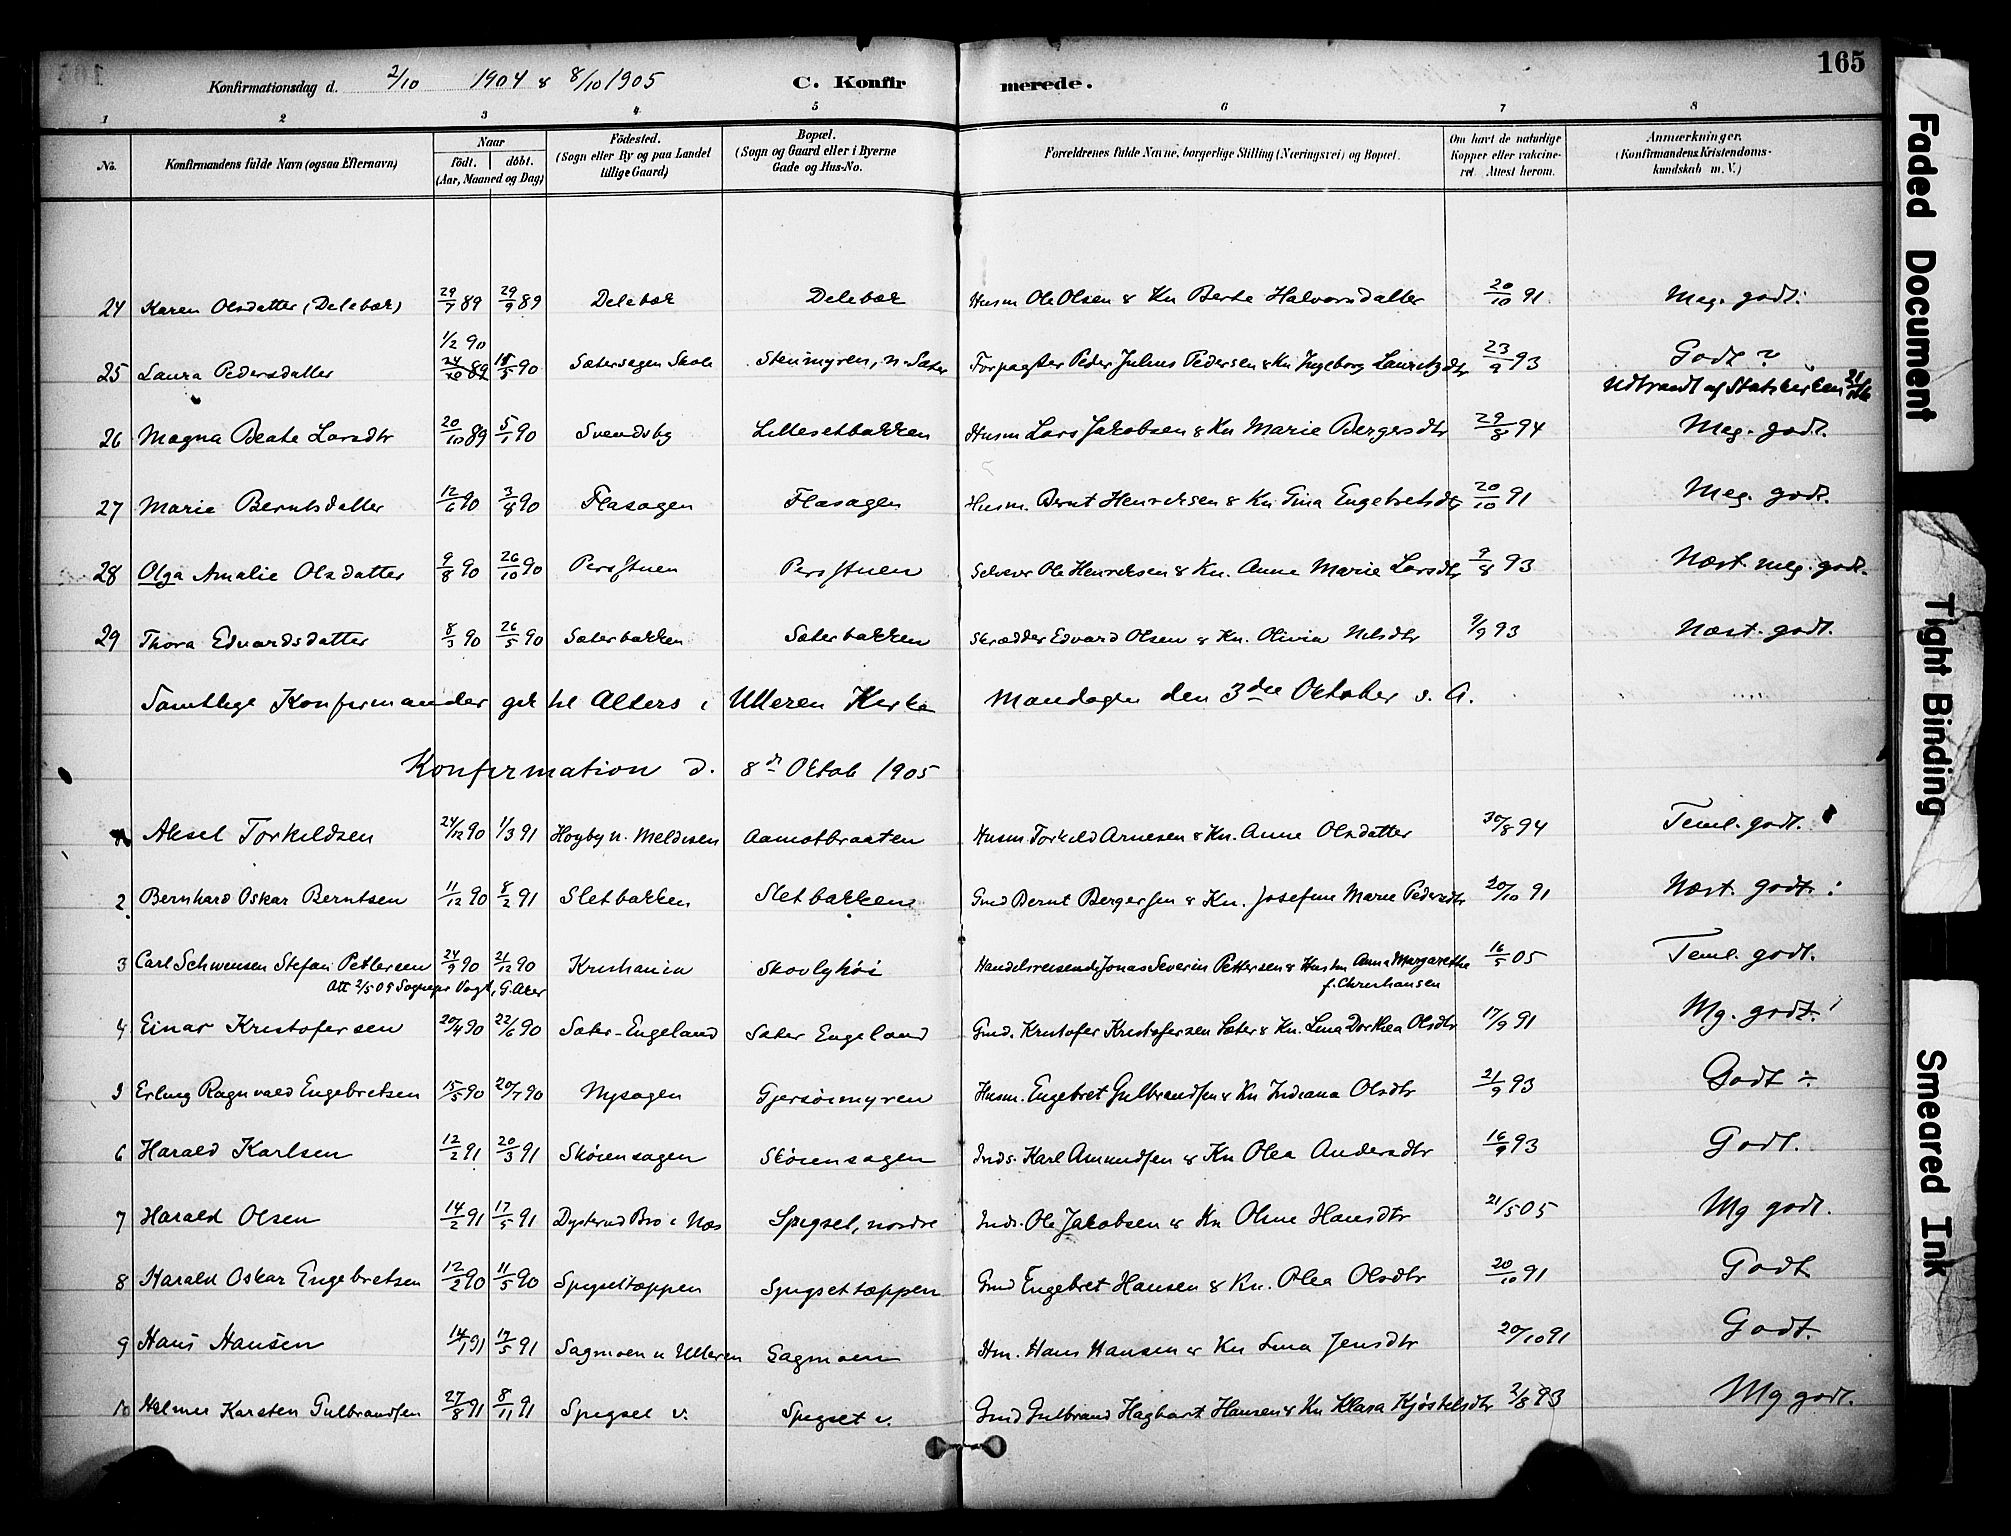 165
Konfirmationsdag d. 2/10 1904 & 8/10 1905 C. Konfirmerede.
1 2 3 4 5 6 7 8
No. Konfirmandens fulde Navn (ogsaa Efternavn) Naar födt. döbt. (Aar, Maaned og Dag) Födested. (Sogn eller By og paa Landet tillige Gaard) Bopæl. (Sogn og Gaard eller i Byerne Gade og Hus-No. Forældrenes fulde Navne, borgerlige Stilling (Næringsvei) og Bopæl. Om havt de naturlige Kopper eller vakcineret. Attest herom. Anmærkninger. (Konfirmandens Kristendomskundskab m. V.)
24 Karen Olsdatter (Delebæk) 29/7 89 29/9 89 Delebæk Delebæk Husm Ole Olsen & Kn Berte Halvorsdatter 20/10 91 Meg. godt.
1/2 90
25 Laura Pedersdatter 24/10 89 15/5 90 Sætersagen Skole Stenmyren, n. Sæter Forpagter Peder Julius Pedersen & Kn Ingeborg Lauritzdtr 23/9 93 Godt ?
Udtraadt af Statskirken
26 Magna Beate Larsdtr 20/10 89 5/1 90 Svendsby Lillesetbakken Husm Lars Jakobsen & Kn Marie Bergersdtr 29/8 94 Meg. godt.
27 Marie Berntsdatter 12/6 90 3/8 90 Flasagen Flasagen Husm. Bernt Henriksen & Kn Gina Engebretsdtr 20/10 91 Meg. godt.
28 Olga Amalie Olsdatter 9/8 90 26/10 90 Persstuen Persstuen Selveier Ole Henriksen & Kn. Anne Marie Larsdtr 9/8 93 Næst. meg. godt.
29 Thora Edvardsdatter 8/3 90 26/5 90 Sæterbakken Sæterbakken Skrædder Edvard Olsen & Kn. Olivia Nilsdtr 9/9 93 Næst. godt.
Samtlige Konfirmander gik til Alters i Ulleren Kirke Mandagen den 3die Oktober s. A.
Konfirmation d. 8de Oktob 1905
1 Aksel Torkildsen 24/12 90 1/3 91 Høgby n. Meldisen Aamotbraaten Husm. Torkild Arnesen & Kn. Anne Olsdatter 30/8 94 Teml. godt.
2 Bernhard Oskar Berntsen 11/12 90 8/2 91 Sletbakken Sletbakken Gmd Bernt Bergersen & Kn. Josefine Marie Pedersdtr 20/10 91 Næst. godt.
3 Carl Schwensen Stefan Pettersen 24/9 90 21/12 90 Kristiania Skovlykøi Handelsreisende Jonas Severin Pettersen & Hustru Anna Margarethe 16/5 05 Teml. godt.
Att 2/5 05 Sognepr Vogt, G. Aker f. Christiansen
4 Einar Kristofersen 20/4 90 22/6 90 Sæter-Engeland Sæter Engeland Gmd. Kristofer Kristofersen Sæter & Kn. Lina Dorthea Olsdtr 17/9 91 Mg. godt.
5 Erling Ragnvald Engebretsen 15/5 90 20/7 90 Nysagen Gjersøimyren Husm. Engebret Gulbrandsen & Kn Indiana Olsdtr 21/9 93 Godt ÷
6 Harald Karlsen 12/2 91 20/3 91 Skøiensagen Skøiensagen Inds. Karl Amundsen & Kn Olea Andersdtr 16/9 93 Godt.
7 Harald Olsen 14/2 91 17/5 91 Dysterud Bro i Næs Spigset, nordre Inds. Ole Jakobsen & Kn Oline Hansdtr 21/5 05 Mg godt.
8 Harald Oskar Engebretsen 12/2 90 11/5 90 Spigsettoppen Spigsettoppen Gmd Engebret Hansen & Kn. Olea Olsdtr 20/10 91 Godt
9 Hans Hansen 14/1 91 17/5 91 Sagmoen u Ulleren Sagmoen Hm. Hans Hansen & Kn Lina Jensdtr 20/10 91 Godt.
10 Helmer Karsten Gulbrandsen 27/8 91 8/11 91 Spigset v. Spigset v. Gmd Gulbrand Hagbart Hansen & Kn Klara Kjøstelsdtr 2/8 93 Mg godt.
Faded Document
Tight Binding
Smeared Ink